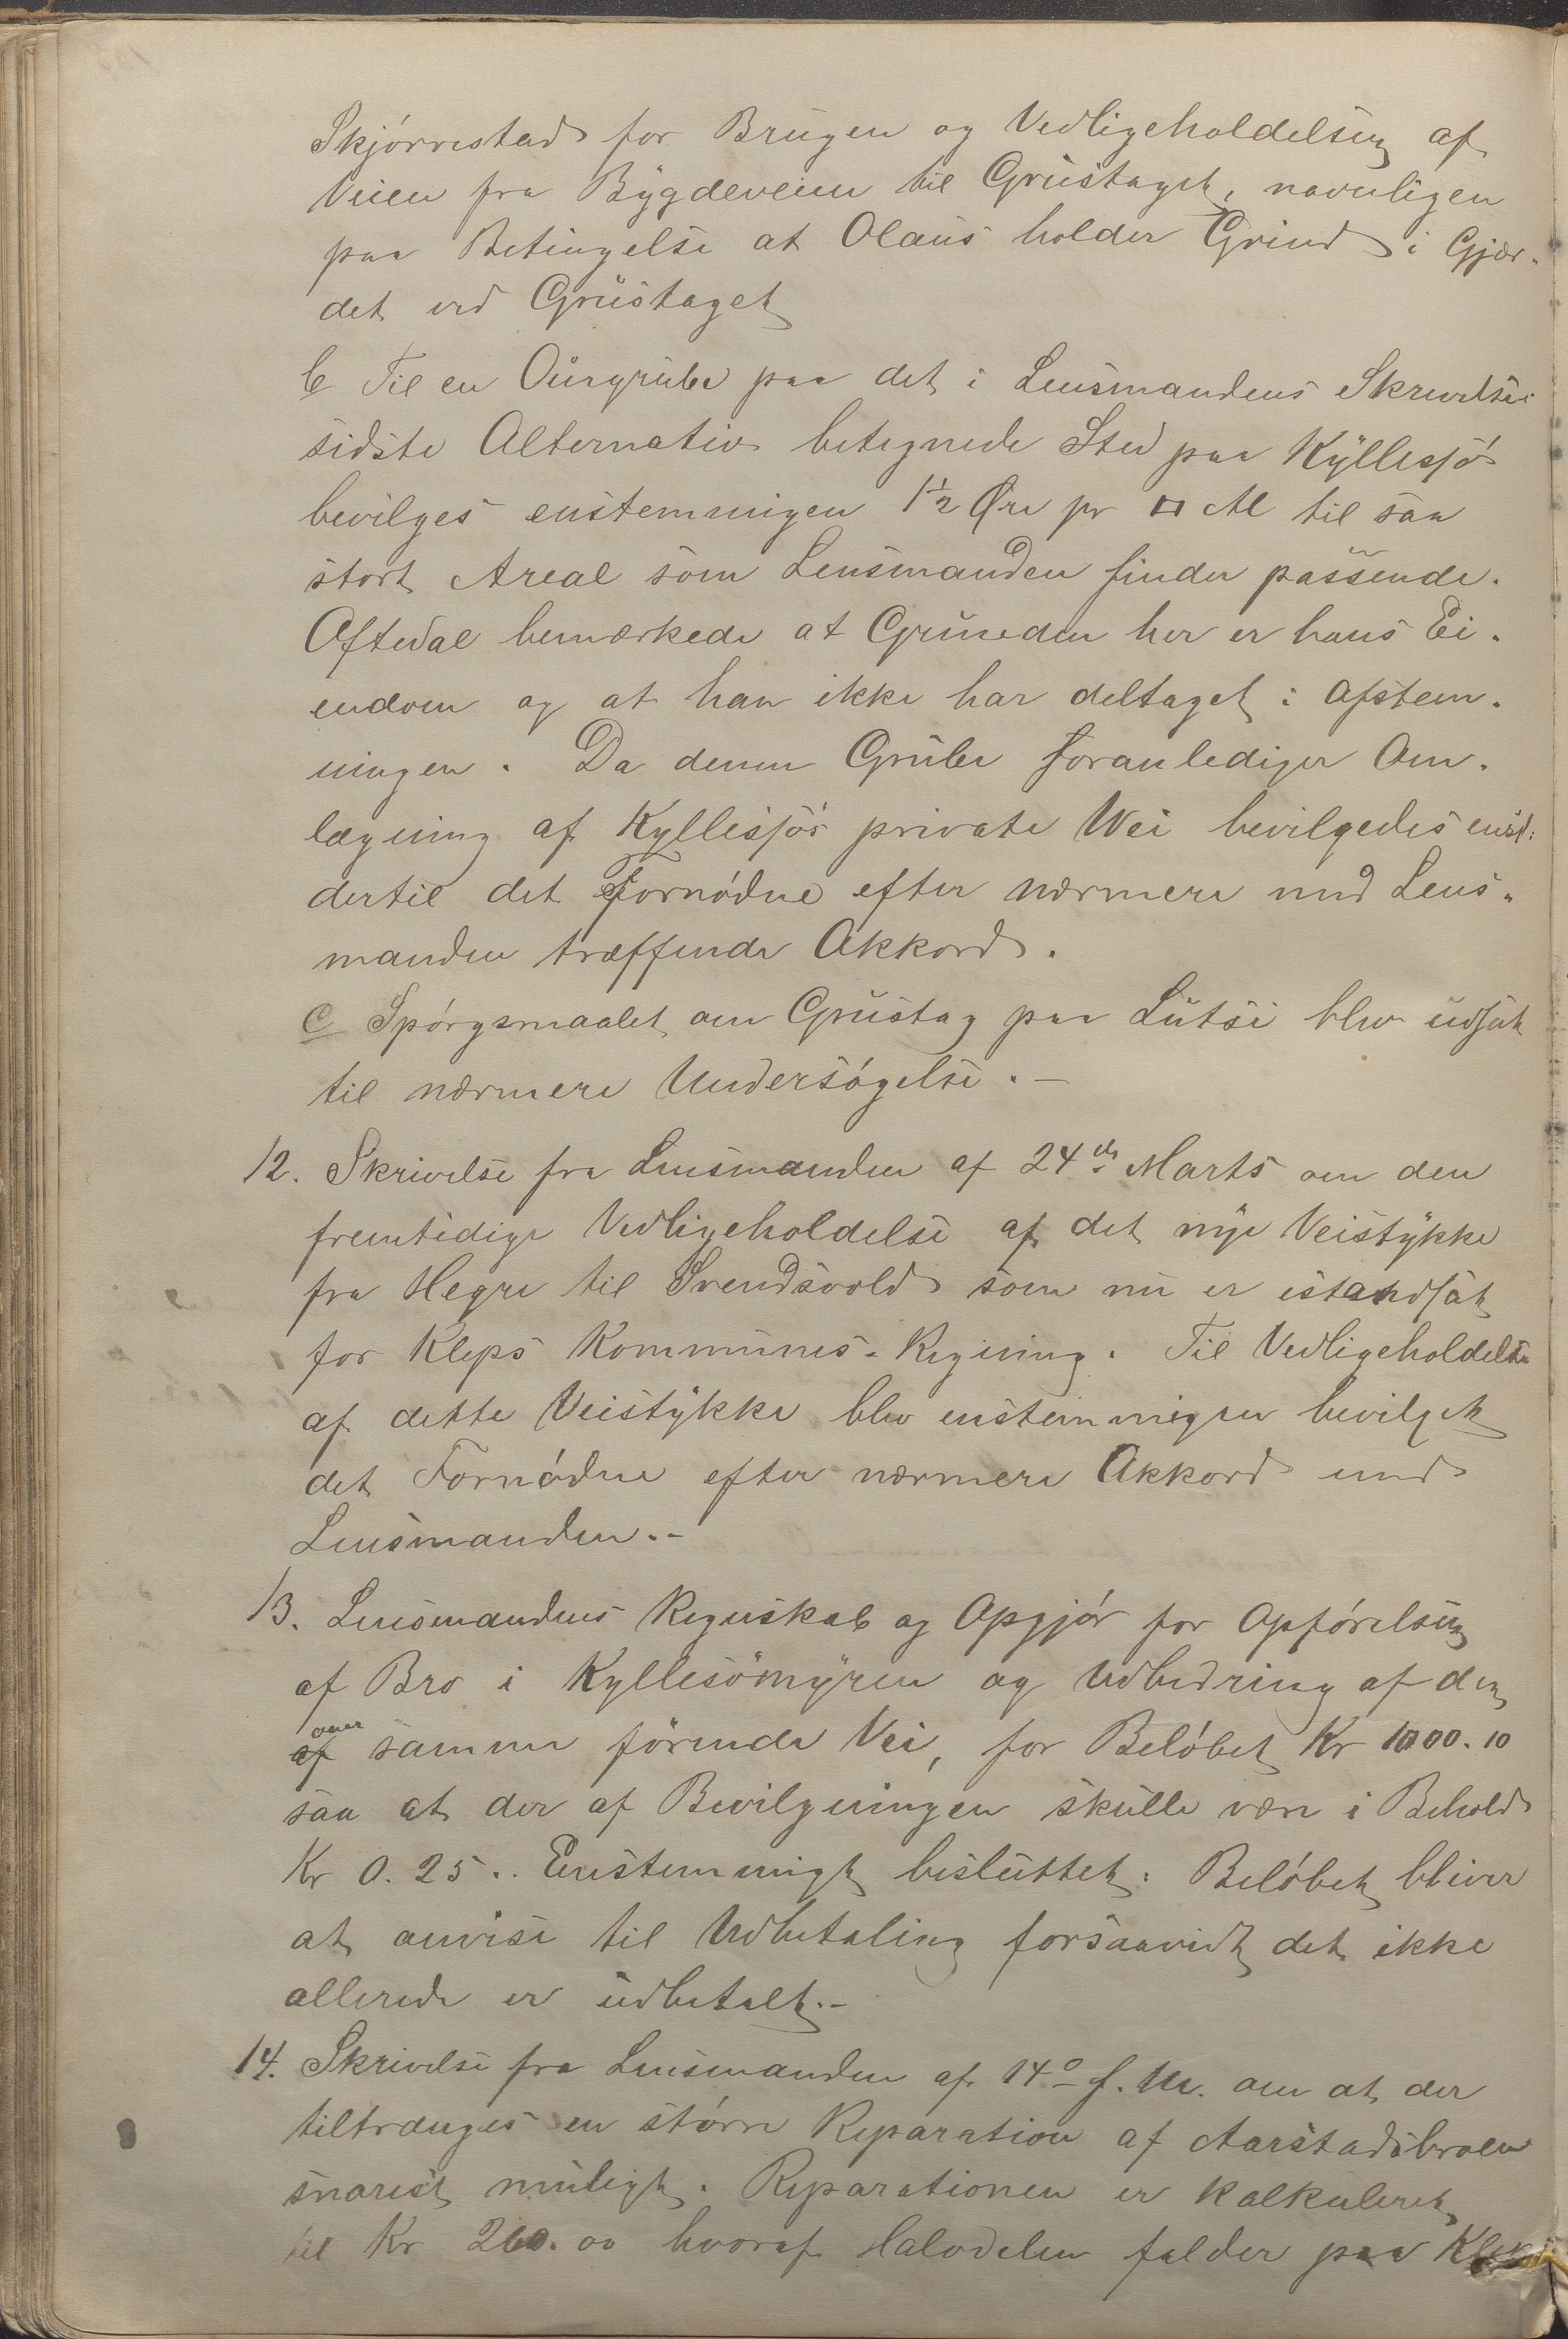 Skjørrestad for Brugen og Vedligeholdelsen af
Veien fra Bygdeveien til Grustaget, navnligen
paa Betingelse at Olaus holder Grind i Gjær-
det ved Grustaget
b Til en Ourgrube paa det i Lensmandens Skrivelses
sidste Alternativ betegnede Sted paa Kyllesjø
bevilges enstemmigen 1½ Øre pr □ Al til saa
stort Areal som Lensmanden finder passende.
Aftedal bemærkede at Grunden her er hans Ei-
endom og at han ikke har deltaget i Afstem-
ningen. Da denne Grube foranlediger Om-
lægning af Kyllesjøs private Vei bevilgedes enst:
dertil det Fornødne efter nærmere med Lens-
manden træffende Akkord.
c Spørgsmaalet om Grustag paa Lutsi blev udsat
til nærmere Undersøgelse.-
12. Skrivelse fra Lensmanden af 24de Marts om den
fremtidige Vedligeholdelse af det nye Veistykke
fra Hegre til Svendsvold som nu er istandsat
for Kleps Kommunes-Regning. Til Vedligeholdelse
af dette Veistykke blev enstemmigen bevilget
det Fornødne efter nærmere Akkord med
Lensmanden.-
13. Lensmandens Regnskab og Opgjør for Opførelsen
af Bro i Kyllesömyren og Udbedring af den
over
af samme førende Vei, for Beløbet Kr 1000.10
saa at der af Bevilgningen skulle være i Behold
Kr 0.25.. Enstemmigt besluttet: Beløbet bliver
at anvise til Udbetaling forsaavidt det ikke
allerede er udbetalt.-
14. Skrivelse fra Lensmanden af 14o f. M. om at der
tiltrænges en større Reparation af Aarstadsbroen
snarest muligt. Reparationen er kalkuleret
til Kr 260.00 hvoraf Halvdelen falder paa Klep